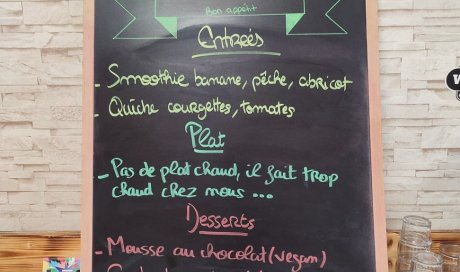 Bon appétit
Entrées
- Smoothie banane, pêche, abricot
- Quiche courgettes, tomates
Plat
- Pas de plat chaud, il fait trop
chaud chez nous ...
Desserts
- Mousse au chocolat (vegan)